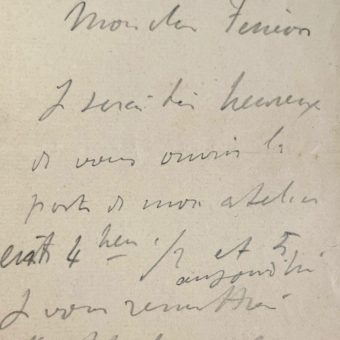 Mon cher Fénéon
Je serai très heureux
de vous ouvrir la
porte de mon atelier
entre 4 heu. 1/2 et 5
aujourd'hui
Je vous remettrai